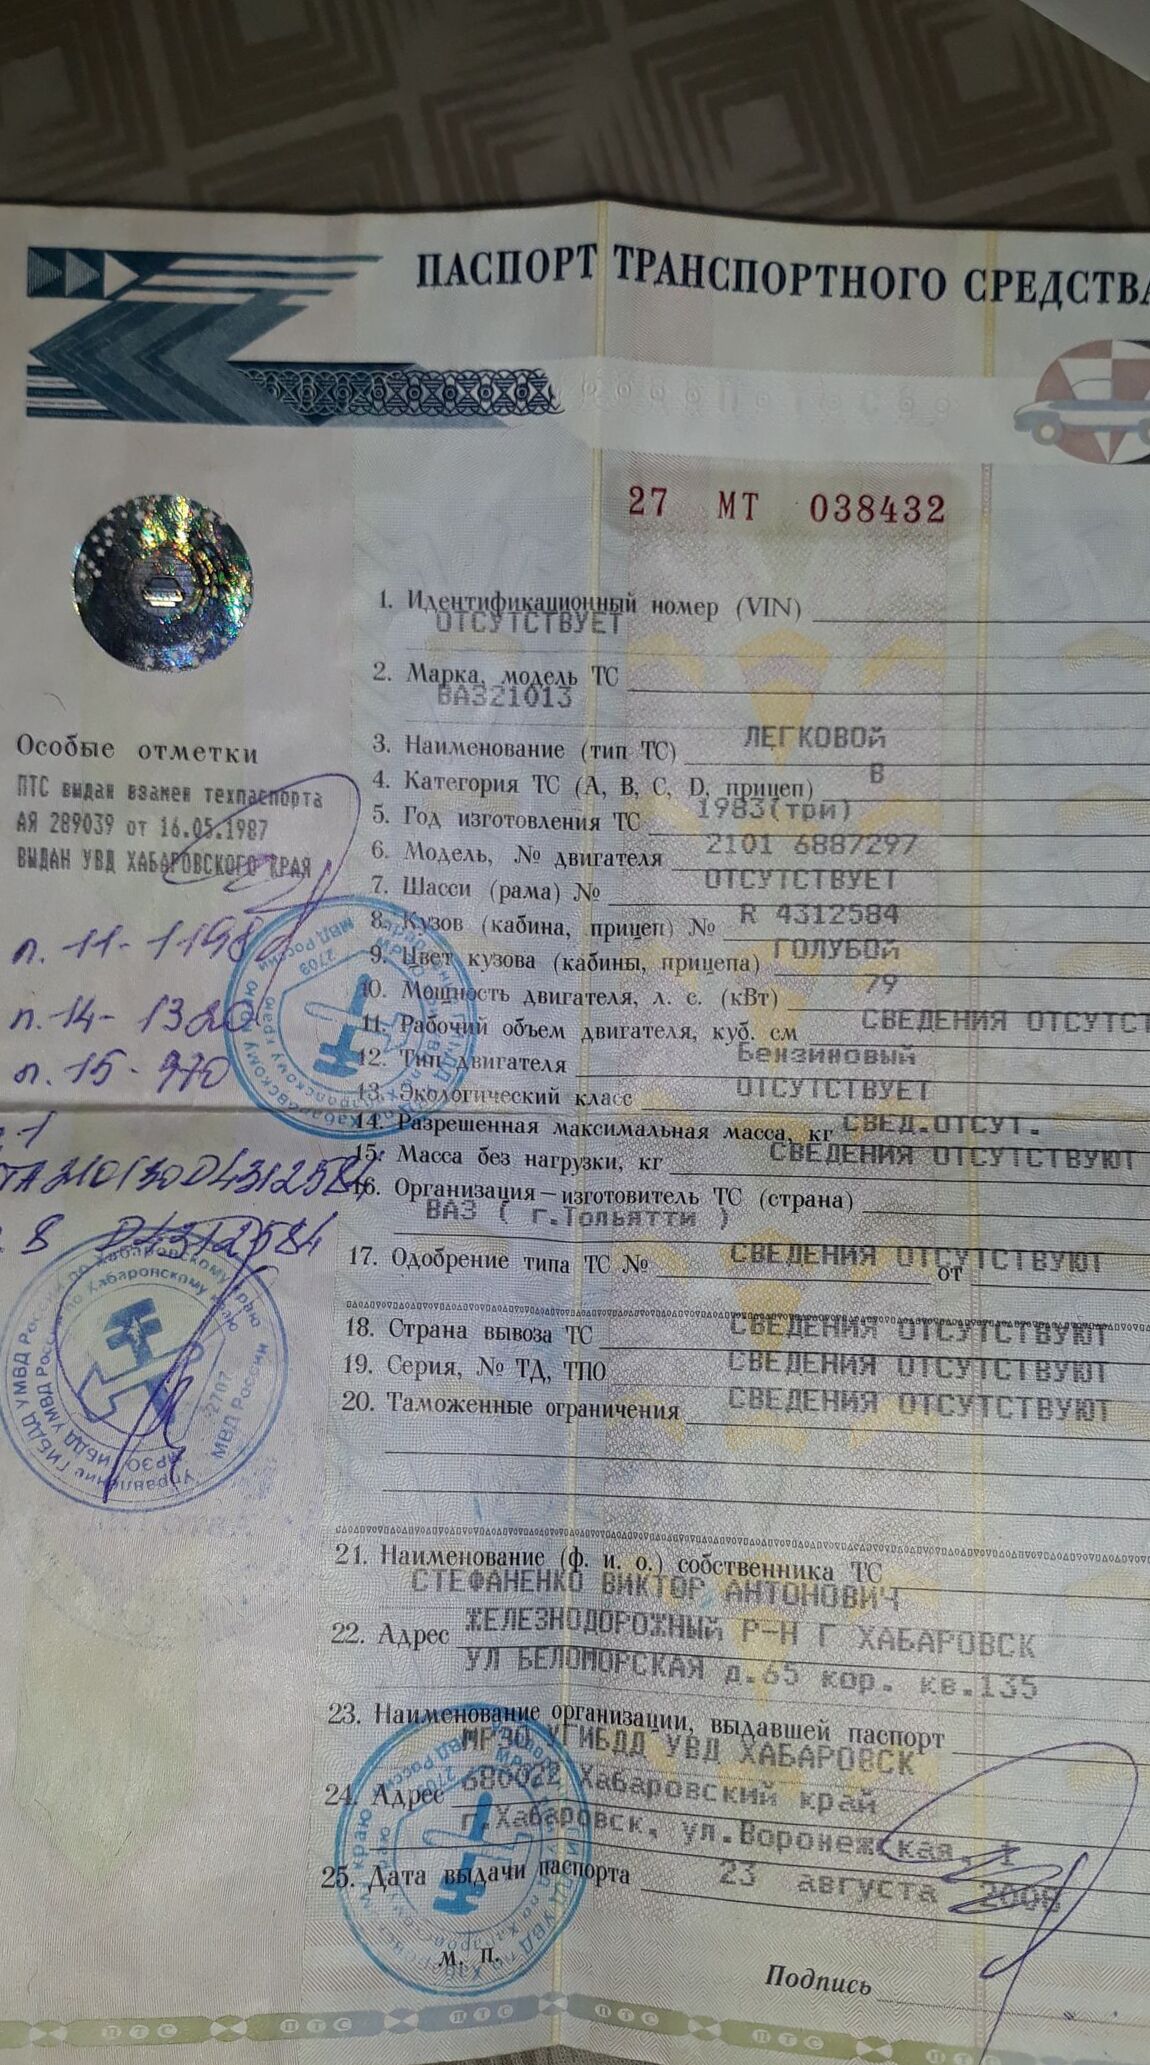 ПАСПОРТ ТРАНСПОРТНОГО СРЕДСТВА
27 МТ 038432
1. Идентификационный номер (VIN)
ОТСУТСТВУЕТ
2. Марка, модель ТС
ВАЗ21013
3. Наименование (тип ТС) ЛЕГКОВОЙ
4. Категория ТС (A, B, C, D, прицеп) В
5. Год изготовления ТС 1983(три)
6. Модель, № двигателя 2101 6887297
7. Шасси (рама) № ОТСУТСТВУЕТ
8. Кузов (кабина, прицеп) № R 4312584
9. Цвет кузова (кабины, прицепа) ГОЛУБОЙ
10. Мощность двигателя, л. с. (кВт) 79
11. Рабочий объем двигателя, куб. см СВЕДЕНИЯ ОТСУТСТ
12. Тип двигателя Бензиновый
13. Экологический класс ОТСУТСТВУЕТ
14. Разрешенная максимальная масса, кг СВЕД.ОТСУТ.
15. Масса без нагрузки, кг СВЕДЕНИЯ ОТСУТСТВУЮТ
16. Организация – изготовитель ТС (страна)
ВАЗ ( г.Тольятти )
17. Одобрение типа ТС № СВЕДЕНИЯ ОТСУТСТВУЮТ
от
18. Страна вывоза ТС СВЕДЕНИЯ ОТСУТСТВУЮТ
19. Серия, № ТД, ТПО СВЕДЕНИЯ ОТСУТСТВУЮТ
20. Таможенные ограничения СВЕДЕНИЯ ОТСУТСТВУЮТ
21. Наименование (ф. и. о.) собственника ТС
СТЕФАНЕНКО ВИКТОР АНТОНОВИЧ
22. Адрес ЖЕЛЕЗНОДОРОЖНЫЙ Р-Н Г ХАБАРОВСК
УЛ БЕЛОМОРСКАЯ д.65 кор. кв.135
23. Наименование организации, выдавшей паспорт
МРЭО УГИБДД УВД ХАБАРОВСК
24. Адрес 680022 Хабаровский край
г.Хабаровск, ул.Воронежская, 1
25. Дата выдачи паспорта 23 августа 2008
м. п.
Подпись
Особые отметки
ПТС выдан взамен техпаспорта
АЯ 289039 от 16.05.1987
ВЫДАН УВД ХАБАРОВСКОГО КРАЯ
п. 11 - 1198
п. 14 - 1320
п. 15 - 970
ТА210130D4312584
8 D4312584
Управление ГИБДД УМВД России по Хабаровскому краю
МРЭО ГИБДД УМВД России по Хабаровскому краю
2707
МВД России
2703
МВД России
ПТС ПТС ПТС ПТС ПТС ПТС